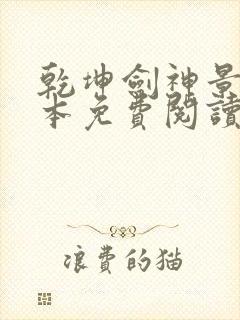 乾坤劍神景
本免費閱讀
浪費的猫